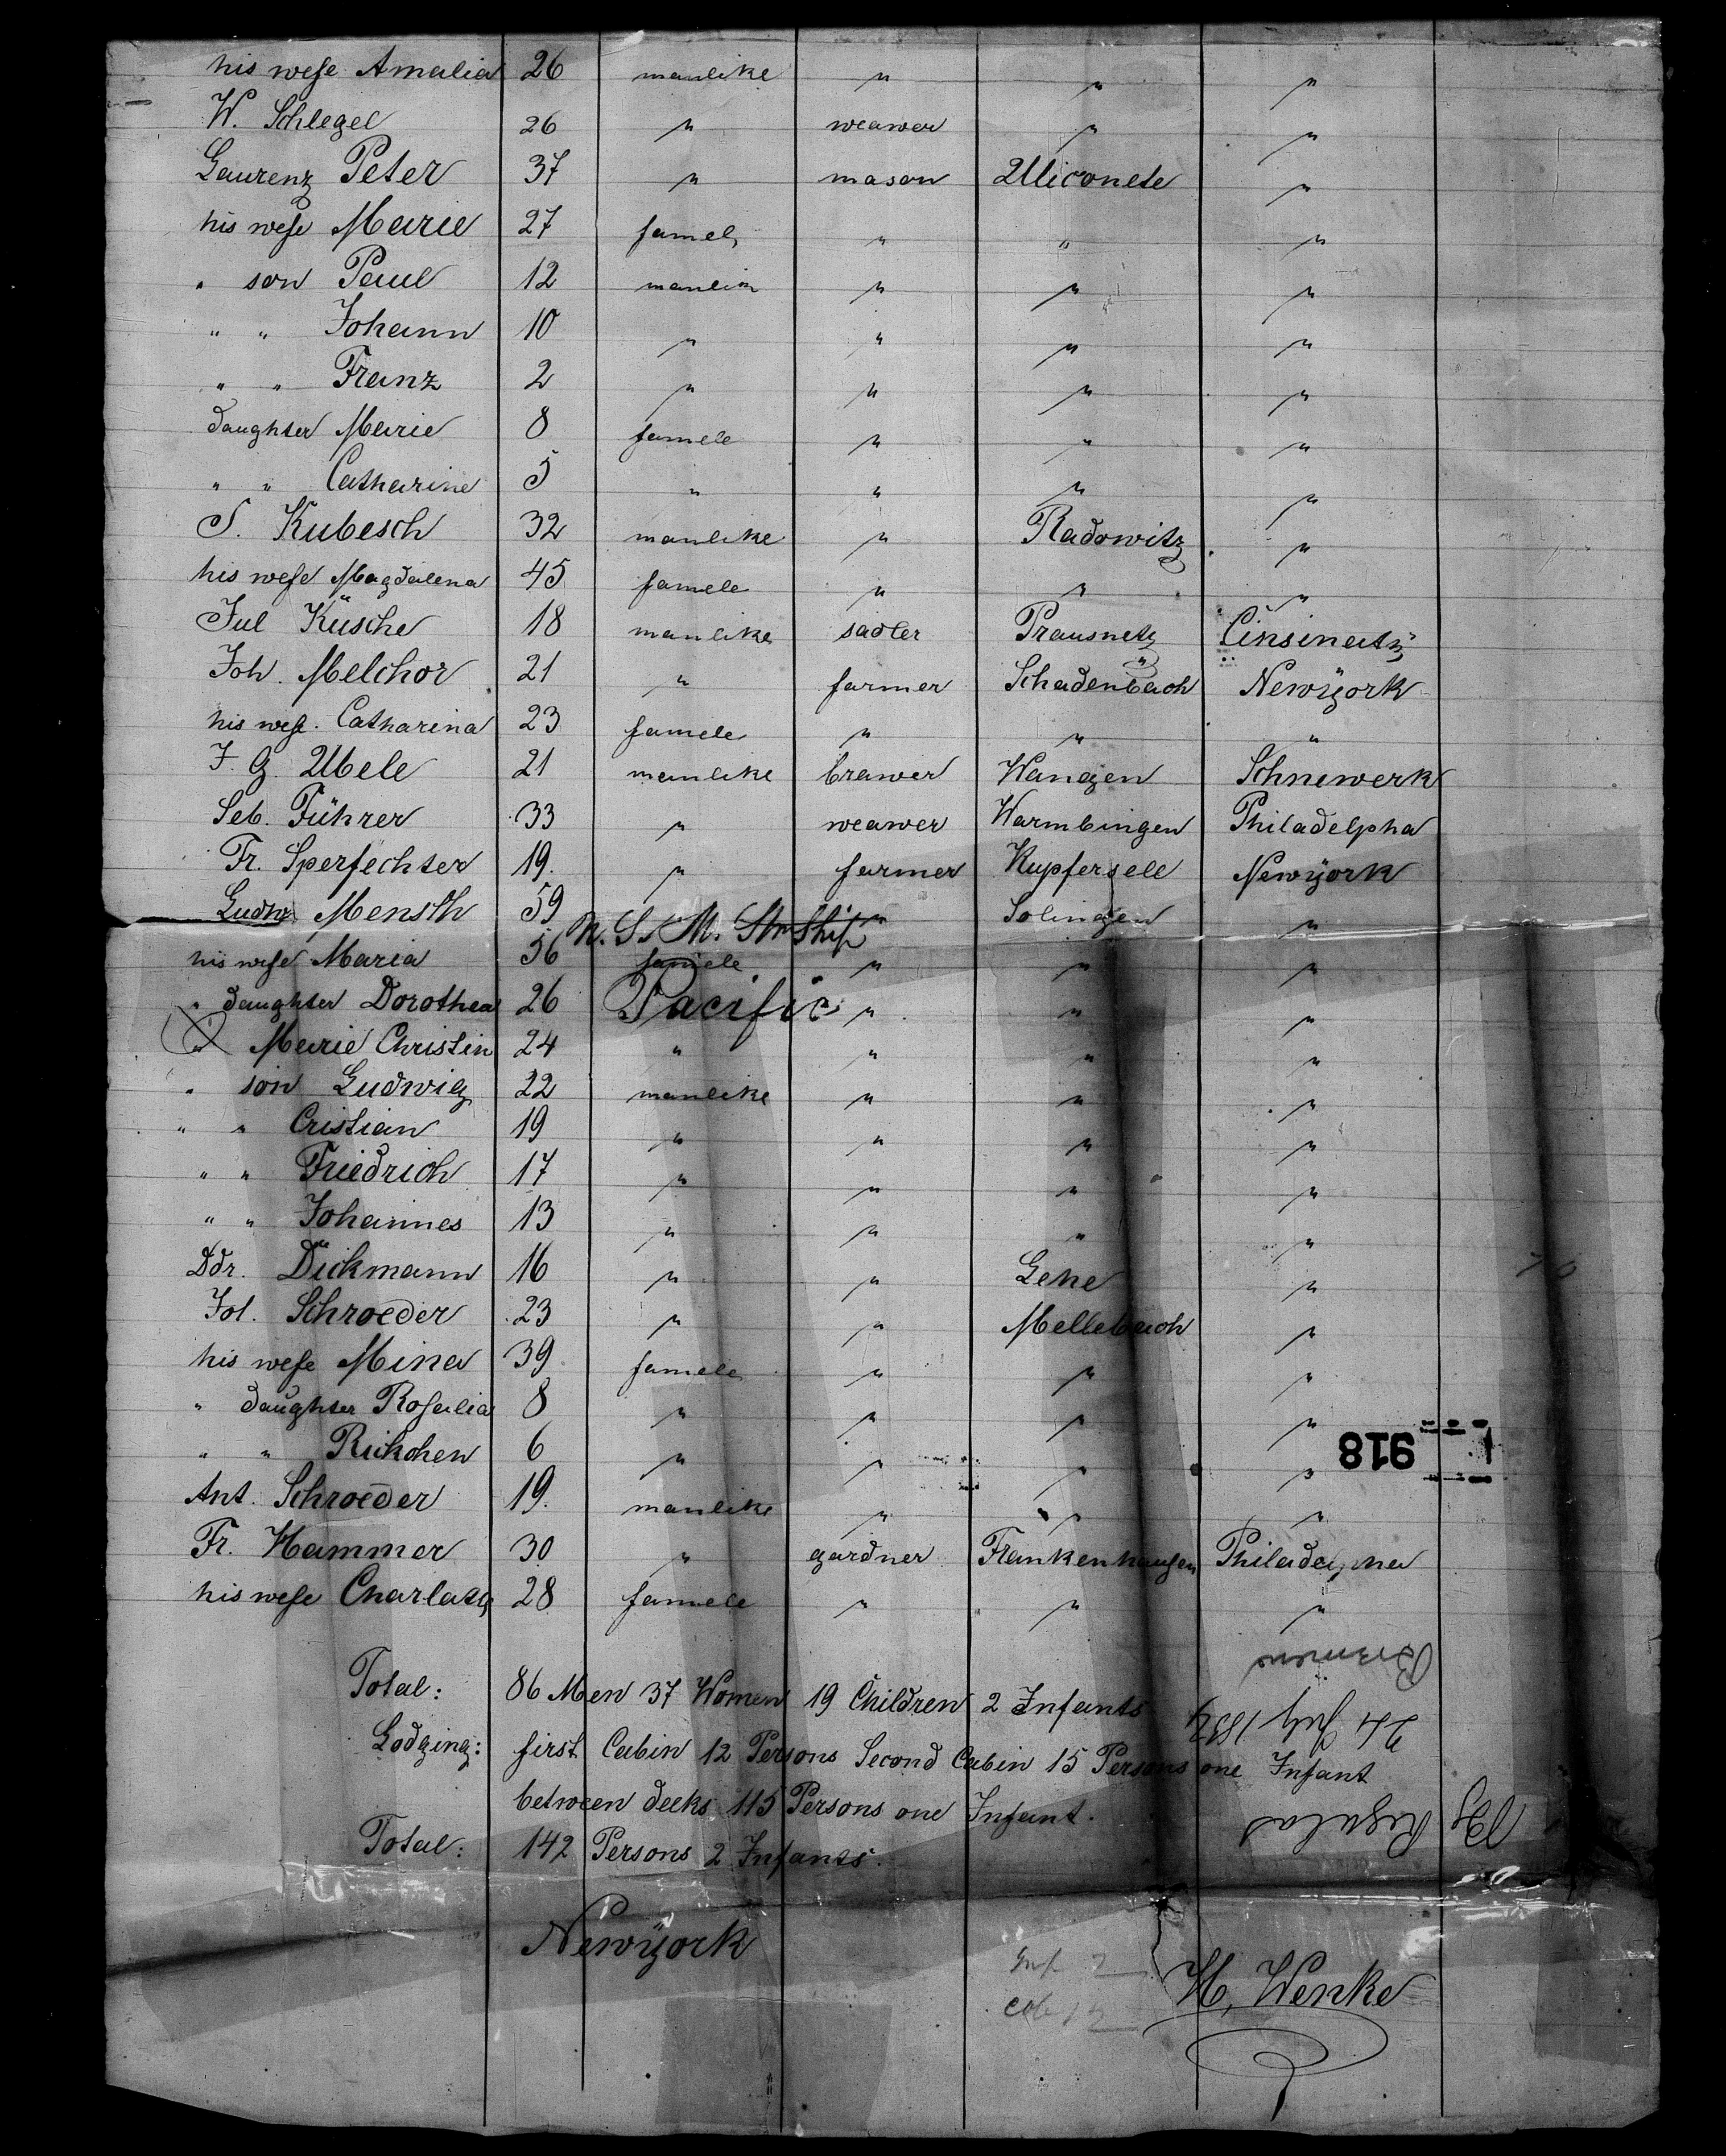 his wefe Amalia 26 manlike " " "
W. Schlegel 26 " weawer " "
Laurenz Peter 37 " mason " 
his wefe Marie 27 famel " " "
" son Paul 12 manlik " " "
" " Johann 10 " " " "
" " Franz 2 " " " "
daughter Marie 8 famele " " "
" " Catharine 5 " " " "
S. Kubesch 32 manlike " Radowitz "
his wefe Magdalena 45 famele " " "
Jul Küsche 18 manlike sadler Prausnetz Cinsinatÿ
Joh. Melchor 21 " farmer Schadenbach Newÿork
his wefe. Catharina 23 famele " " "
J. G. Ubele 21 manlike brawer Wangen Schnewerk
Seb. Führer 33 " weawer Warmbingen Philadelpha
Fr. Sperfechter 19. " farmer Kupfersell Newÿork
Ludw. Mensth 59 " Solingen "
N. S. M. StmShip
his wefe Maria 56 famele " " "
" daughter Dorothea 26 " " "
Pacific
" Marie Christin 24 " " " "
" son Ludwig 22 manlike " " "
" " Cristian 19 " " " "
" " Friedrich 17 " " " "
" " Johannes 13 " " " "
Ddr. Dückmann 16 " " Lehe "
Jol. Schroeder 23 " " Mellebach "
his wefe Mina 39 famele " " "
" daughter Rosalia 8 " " " "
" " Rickchen 6 " " " "
918
Ant. Schroeder 19. manlike " " "
Fr. Hammer 30 " gardner Frankenhausen Philadelpha
his wefe Charlatt 28 famele " " "
Total: 86 Men 37 Women 19 Children 2 Infants
Lodging: first Cabin 12 Persons Second Cabin 15 Persons one Infant
between decks 115 Persons one Infant.
Total: 142 Persons 2 Infants.
Newÿork
Inf 2
H. Wenke
Bg Regulas
24 July 1854
Bremens